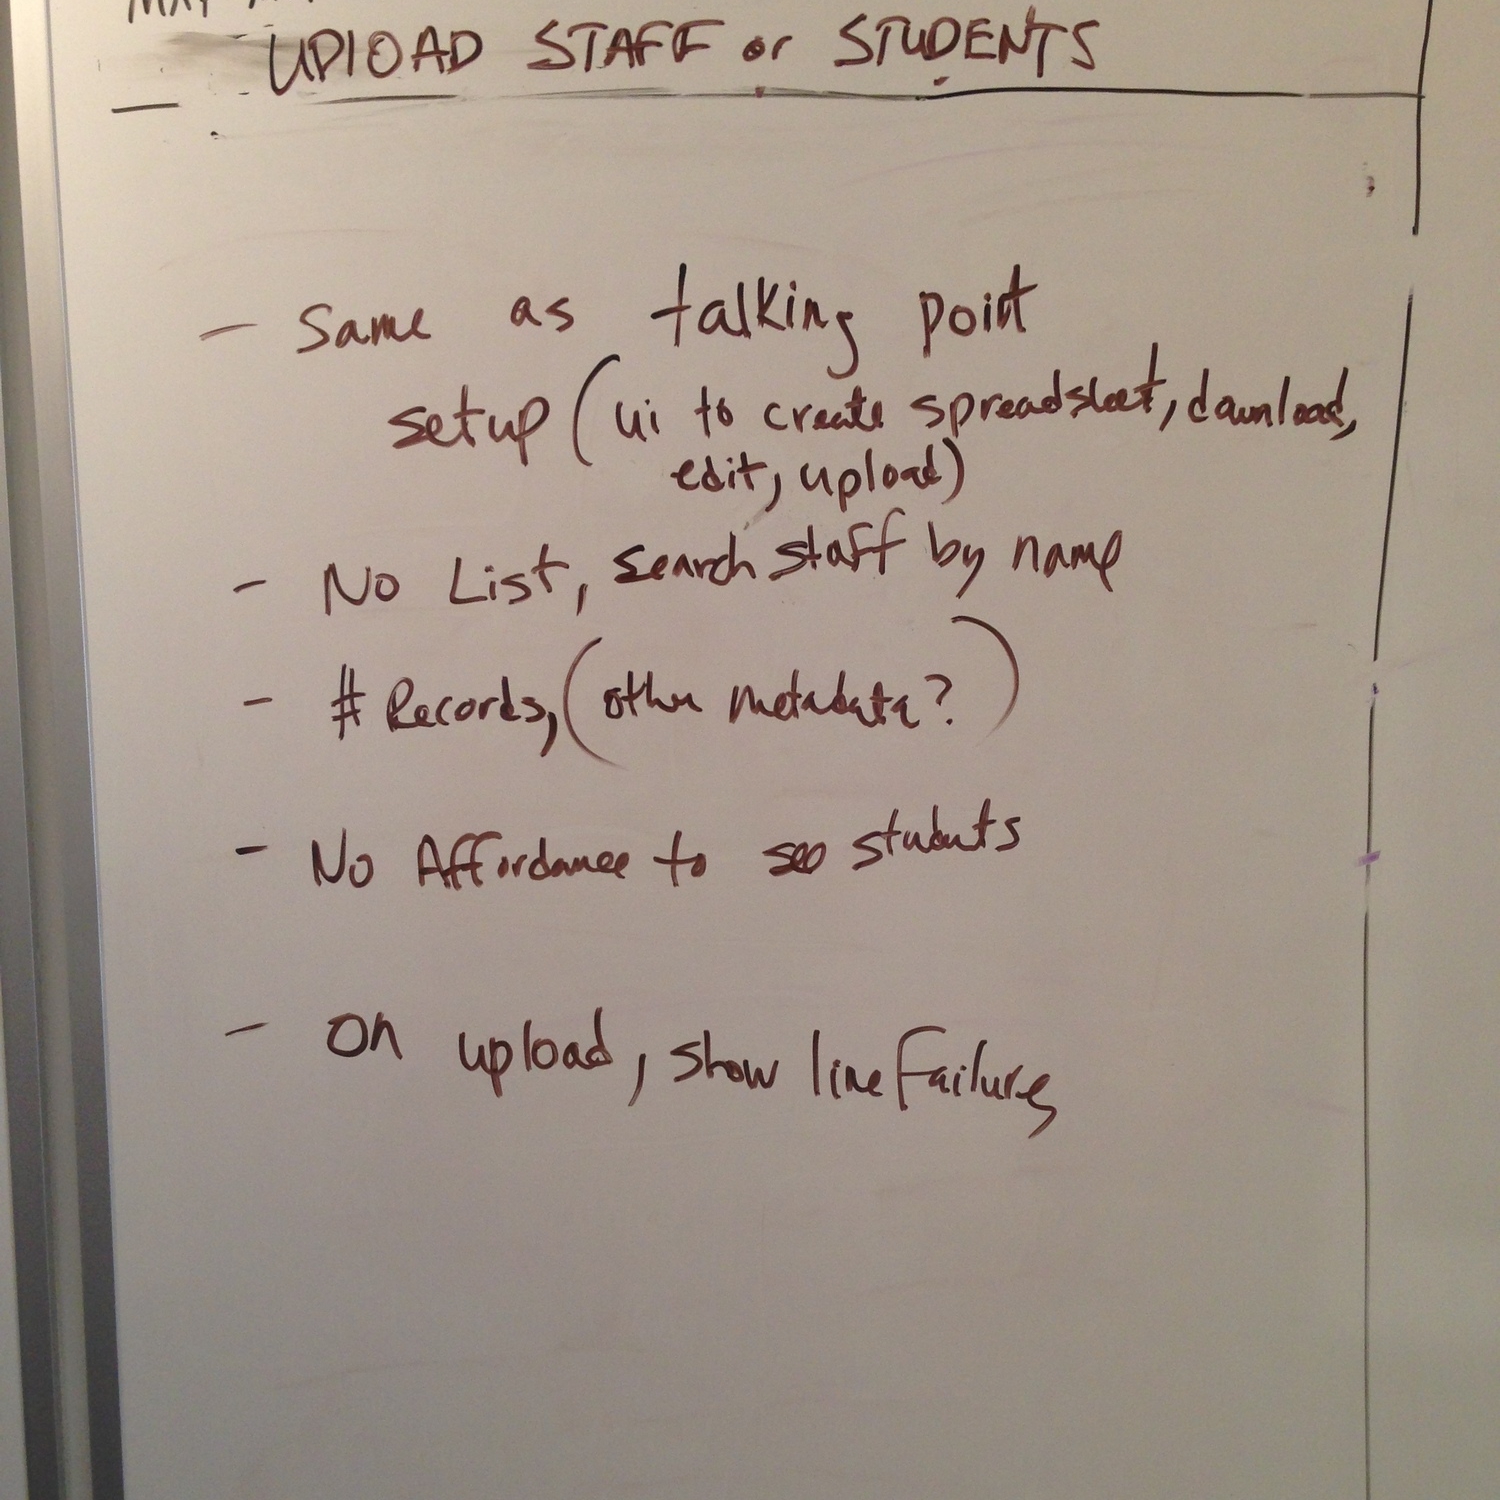 UPLOAD STAFF or STUDENTS
- Same as talking point
setup (ui to create spreadsheet, download,
edit, upload)
- No List, search staff by name
- # Records, (other metadata?)
- No Affordance to see students
- On upload, show line failures